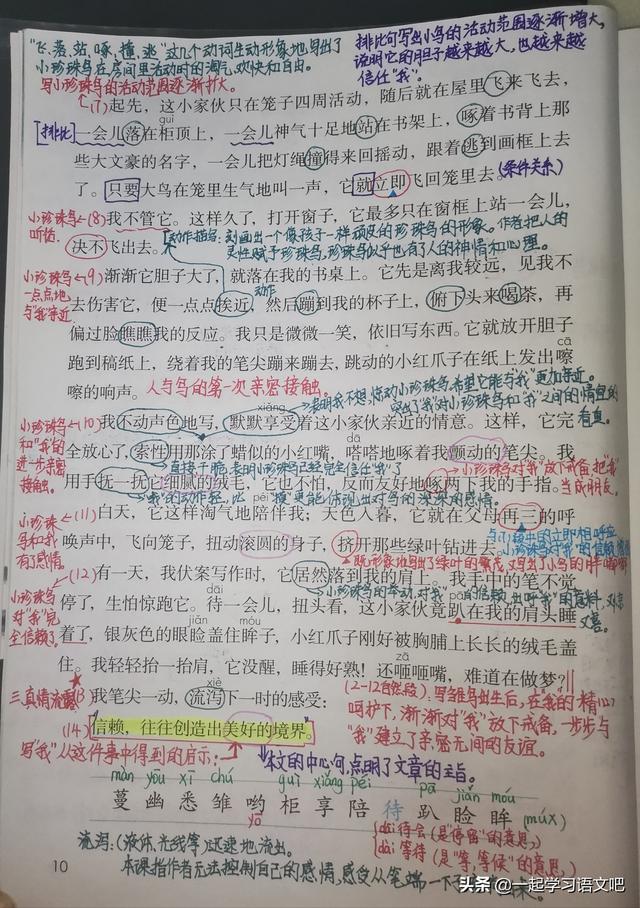 "飞、落、站、啄、撞、逃"这几个动词生动形象地写出了
小珍珠鸟在房间里活动时的淘气、欢快和自由。
排比句写出小鸟的活动范围逐渐增大,
说明它的胆子越来越大,也越来越
信任"我"。
写小珍珠鸟的活动范围逐渐扩大。
(7)起先,这小家伙只在笼子四周活动,随后就在屋里飞来飞去,
guì
[排比]一会儿落在柜顶上,一会儿神气十足地站在书架上,啄着书背上那
些大文豪的名字,一会儿把灯绳撞得来回摇动,跟着逃到画框上去
了。只要大鸟在笼里生气地叫一声,它就立即飞回笼里去。(条件关系)
小珍珠鸟
听话。
(8)我不管它。这样久了,打开窗子,它最多只在窗框上站一会儿,
决不飞出去。
动作描写:刻画出一个像孩子一样顽皮的珍珠鸟的形象。作者把人的
灵性赋予珍珠鸟,珍珠鸟似乎也有了人的神情和心理。
小珍珠鸟
一点点地
与"我"亲近
(9)渐渐它胆子大了,就落在我的书桌上。它先是离我较远,见我不
动作
去伤害它,便一点点挨近,然后蹦到我的杯子上,俯下头来喝茶,再
偏过脸瞧瞧我的反应。我只是微微一笑,依旧写东西。它就放开胆子
跑到稿纸上,绕着我的笔尖蹦来蹦去,跳动的小红爪子在纸上发出嚓
cā
嚓的响声。人与鸟的第一次亲密接触。
表明我不想惊动小珍珠鸟,希望它能与"我"更加亲近。
突出了"我"对小珍珠鸟和"我"之间的情谊的
看重。
小珍珠鸟
和"我"的
进一步亲密
接触。
xiǎng
(10)我不动声色地写,默默享受着这小家伙亲近的情意。这样,它完
dā
全放心了,索性用那涂了蜡似的小红嘴,嗒嗒地啄着我颤动的笔尖。我
直接干脆,表明小珍珠鸟已经完全信任"我"了
小珍珠鸟对"我"放下戒备,把"我"
当成朋友。
用手抚一抚它细腻的绒毛,它也不怕,反而友好地啄两下我的手指。
小珍珠
鸟和我
有了感情。
péi
(11)白天,它这样淘气地陪伴我;天色入暮,它就在父母再三的呼
唤声中,飞向笼子,扭动滚圆的身子,挤开那些绿叶钻进去。
小珍珠鸟
对"我"完
全信赖了
(12)有一天,我伏案写作时,它居然落到我的肩上。我手中的笔不觉
dāi
pā
停了,生怕惊跑它。待一会儿,扭头看,这小家伙竟趴在我的肩头睡
jiǎn
móu
着了,银灰色的眼睑盖住眸子,小红爪子刚好被胸脯上长长的绒毛盖
zā
住。我轻轻抬一抬肩,它没醒,睡得好熟!还咂咂嘴,难道在做梦?
xiè
三、真情流露(13)我笔尖一动,流泻下一时的感受:
(14)信赖,往往创造出美好的境界。
写"我"从这件事中得到的启示:
(2-12自然段):写雏鸟出生后,在我的精心
呵护下,渐渐对"我"放下戒备,一步步与
"我"建立了亲密无间的友谊。
本文的中心句,点明了文章的主旨。
màn yōu xī chú guì xiǎng péi pā jiǎn móu
蔓幽悉雏哟柜享陪待趴睑眸
yō
(mùx)
流泻:(液体、光线等)迅速地流出。
本课指作者无法控制自己的感情,感受从笔端一下子
dāi待会(是"停留"的意思,)
dài等待(是"等,等候"的意思,)
10
头条 @一起学习语文吧